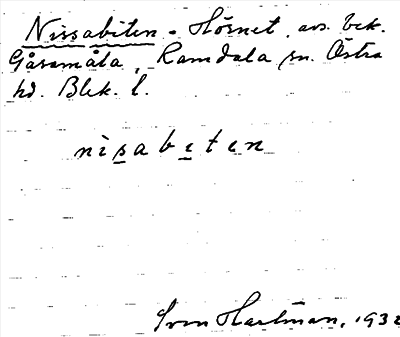 Nissabiten - Hörnet, avs. bek.
Gåsamåla, Ramdala sn. Östra
hd. Blek. l.
nisabiten
Sven Hartman, 1932